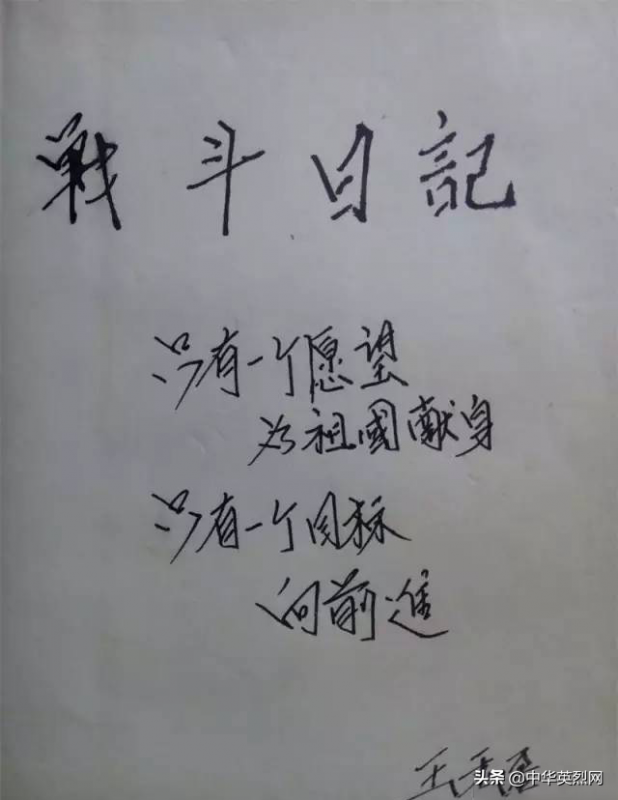 戦斗日記
只有一个愿望
为祖國献身
只有一个目标
向前進
王
头条 @中华英烈网